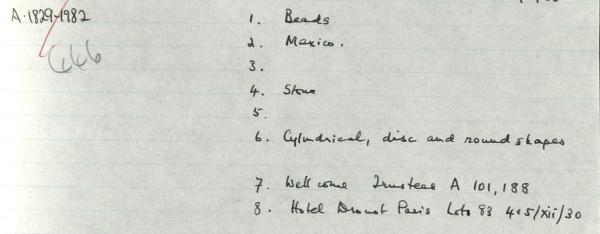 A.1829.1982
666
1. Beads
2. Mexico.
3.
4. Stone
5.
6. Cylindrical, disc and round shapes
7. Wellcome Trustees A 101,188
8. Hotel Drouot Paris Lots 93 4+5/xii/30